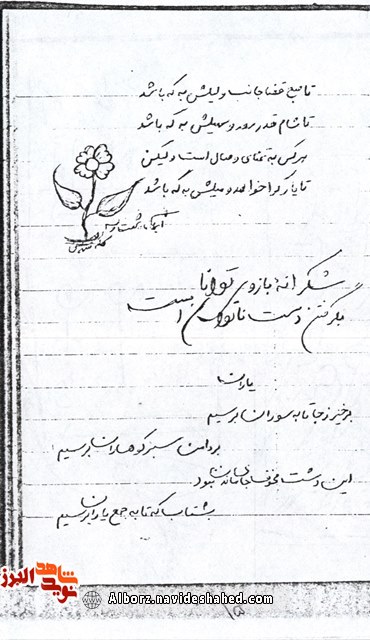 تا تیغ قضا جانب و لیلش به که باشد
تا شام قدر رود و سهیلش به که باشد
هر کس به تمنای وصال است ولیکن
تا یار کرا خواهد و میلش به که باشد
شکرانهٔ بازوی توانا
بگرفتن دست ناتوان است
یاران
برخیز ز جا تا به سواران برسیم
بر دامن سبز کوهساران برسیم
این دشت مخوف جای ماندن نبود
بشتاب که تا به جمع یاران برسیم
شاهد
نوید
البرز
Alborz.navideshahed.com